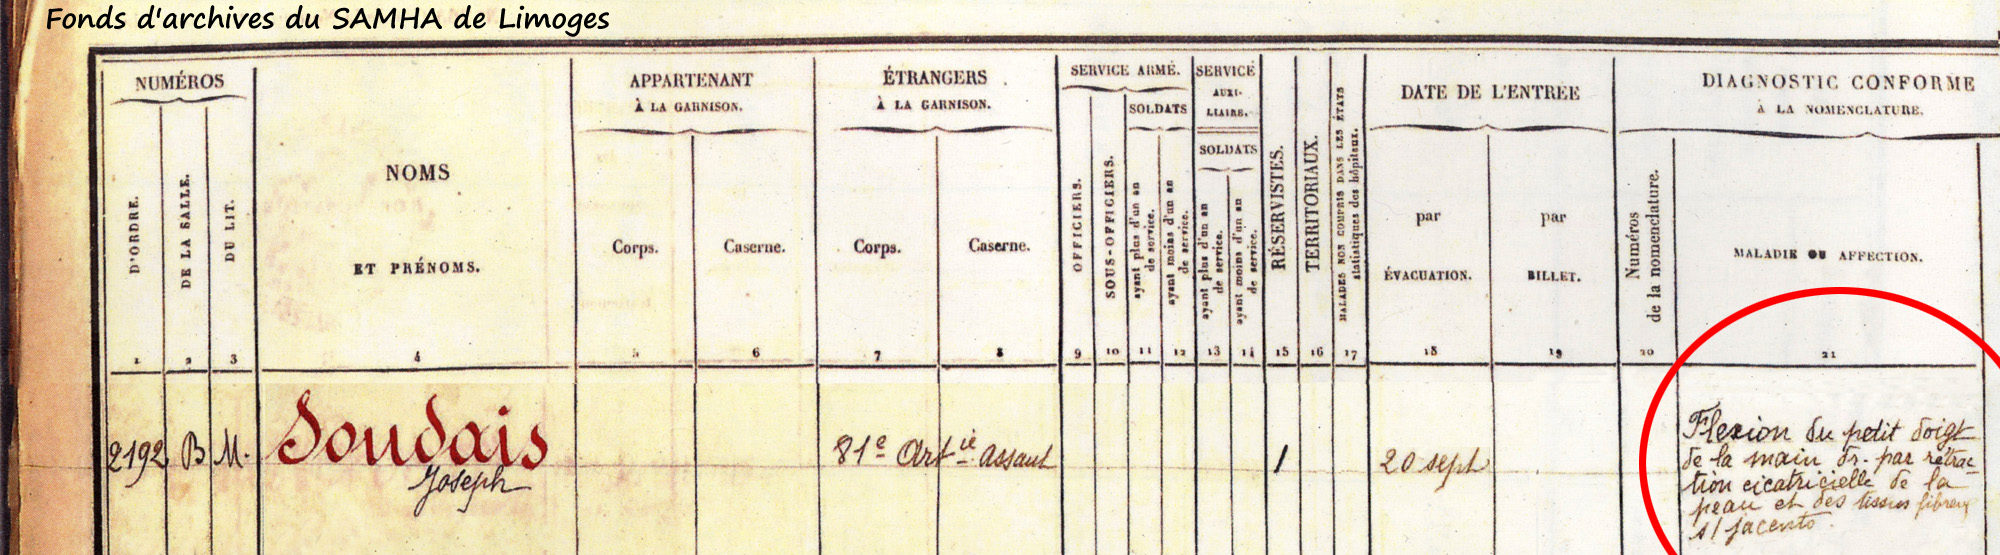 Fonds d'archives du SAMHA de Limoges
NUMÉROS
D'ORDRE.
DE LA SALLE.
DU LIT.
NOMS
ET PRÉNOMS.
APPARTENANT
À LA GARNISON.
Corps.
Caserne.
ÉTRANGERS
À LA GARNISON.
Corps.
Caserne.
SERVICE ARMÉ.
OFFICIERS.
SOUS-OFFICIERS.
SOLDATS
ayant plus d'un an
de service.
ayant moins d'un an
de service.
SERVICE
AUXI-
LIAIRE.
SOLDATS
ayant plus d'un an
de service.
ayant moins d'un an
de service.
RÉSERVISTES.
TERRITORIAUX.
MALADES NON COMPRIS DANS LES ÉTATS
statistiques des hôpitaux.
DATE DE L'ENTRÉE
par
ÉVACUATION.
par
BILLET.
DIAGNOSTIC CONFORME
À LA NOMENCLATURE.
Numéros
de la nomenclature.
MALADIE OU AFFECTION.
1 2 3 4 5 6 7 8 9 10 11 12 13 14 15 16 17 18 19 20 21
2192 B M. Soudais 81e Artie assaut 1 20 sept
Joseph
Flexion du petit doigt
de la main dr. par rétrac-
tion cicatricielle de la
peau et des tissus fibreux
s/jacents.